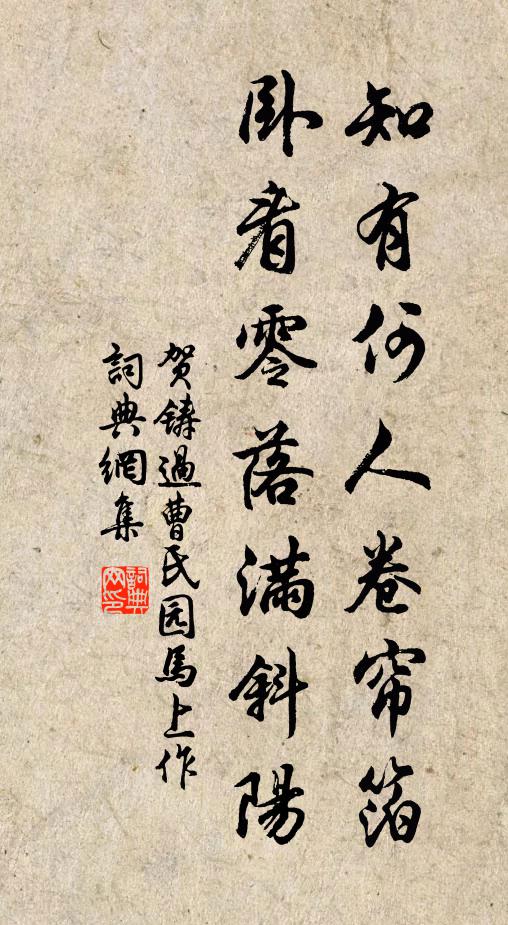 知有何人卷帘箔
卧看零落满斜陽
贺鑄過曹氏园馬上作
詞典網集
詞典网印